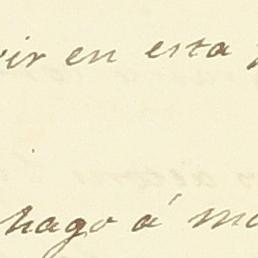 vir en esta
hago á